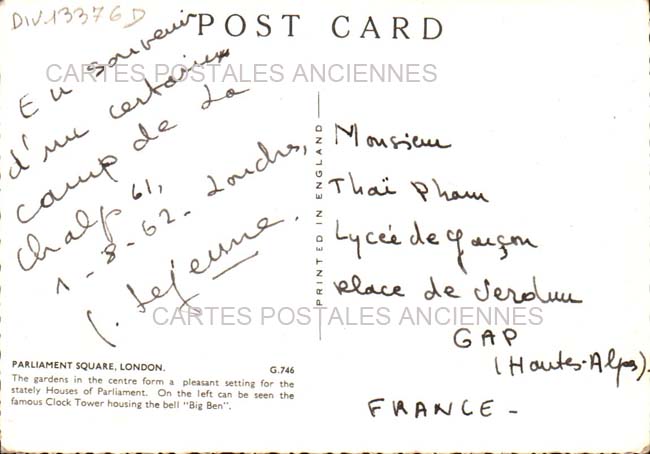 Div.13376D
POST CARD
CARTES POSTALES ANCIENNES
En souvenir
d'un certain
camp de La
Chalp 61,
1-8-62. Londres,
J. Lejeune.
PRINTED IN ENGLAND
Monsieur
Thaï Pham
Lycée de garçon
place de Verdun
GAP
(Hautes-Alpes).
FRANCE -
CARTES POSTALES ANCIENNES
PARLIAMENT SQUARE, LONDON. G.746
The gardens in the centre form a pleasant setting for the
stately Houses of Parliament. On the left can be seen the
famous Clock Tower housing the bell "Big Ben".